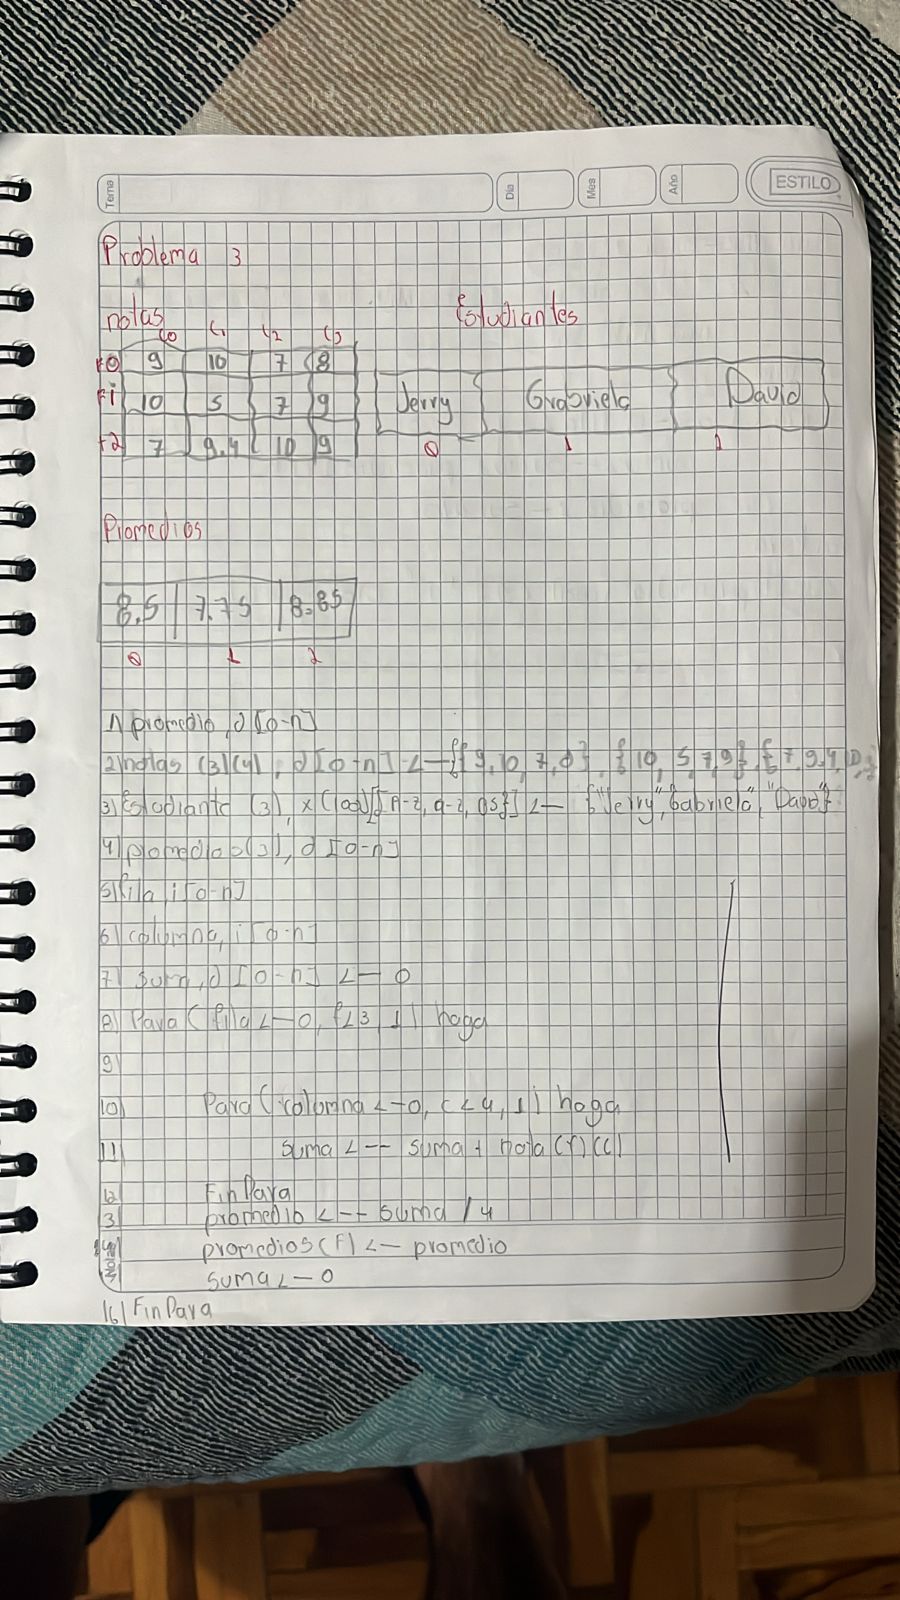 Tema
Dia
Mes
Año
ESTILO
Problema 3
notas
Estudiantes
C0 C1 C2 C3
F0 9 10 7 8
F1 10 5 7 9
F2 7 9.4 10 9
Jerry Grabriela David
0 1 2
Promedios
8.5 7.75 8.85
0 1 2
1) promedio, d [0-n]
2) notas (3)(4), d [0-n] <— {{9,10,7,8}, {10,5,7,9}, {7,9.4,10,
3) Estudiante (3), x(100)[{A-z, a-z, }] <— {"Jerry", "Gabriela", "David"}
4) promedios(3), d [0-n]
5) fila, i [0-n]
6) columna, i [0-n]
7) suma, d [0-n] <— 0
8) Para (fila <—0, f<3, 1) haga
9
10) Para (columna <—0, c<4, 1) haga
11) suma <— suma + nota (f)(c)
12 FinPara
13 promedio <— suma / 4
14 promedios (F) <— promedio
Notas
suma <— 0
16) FinPara